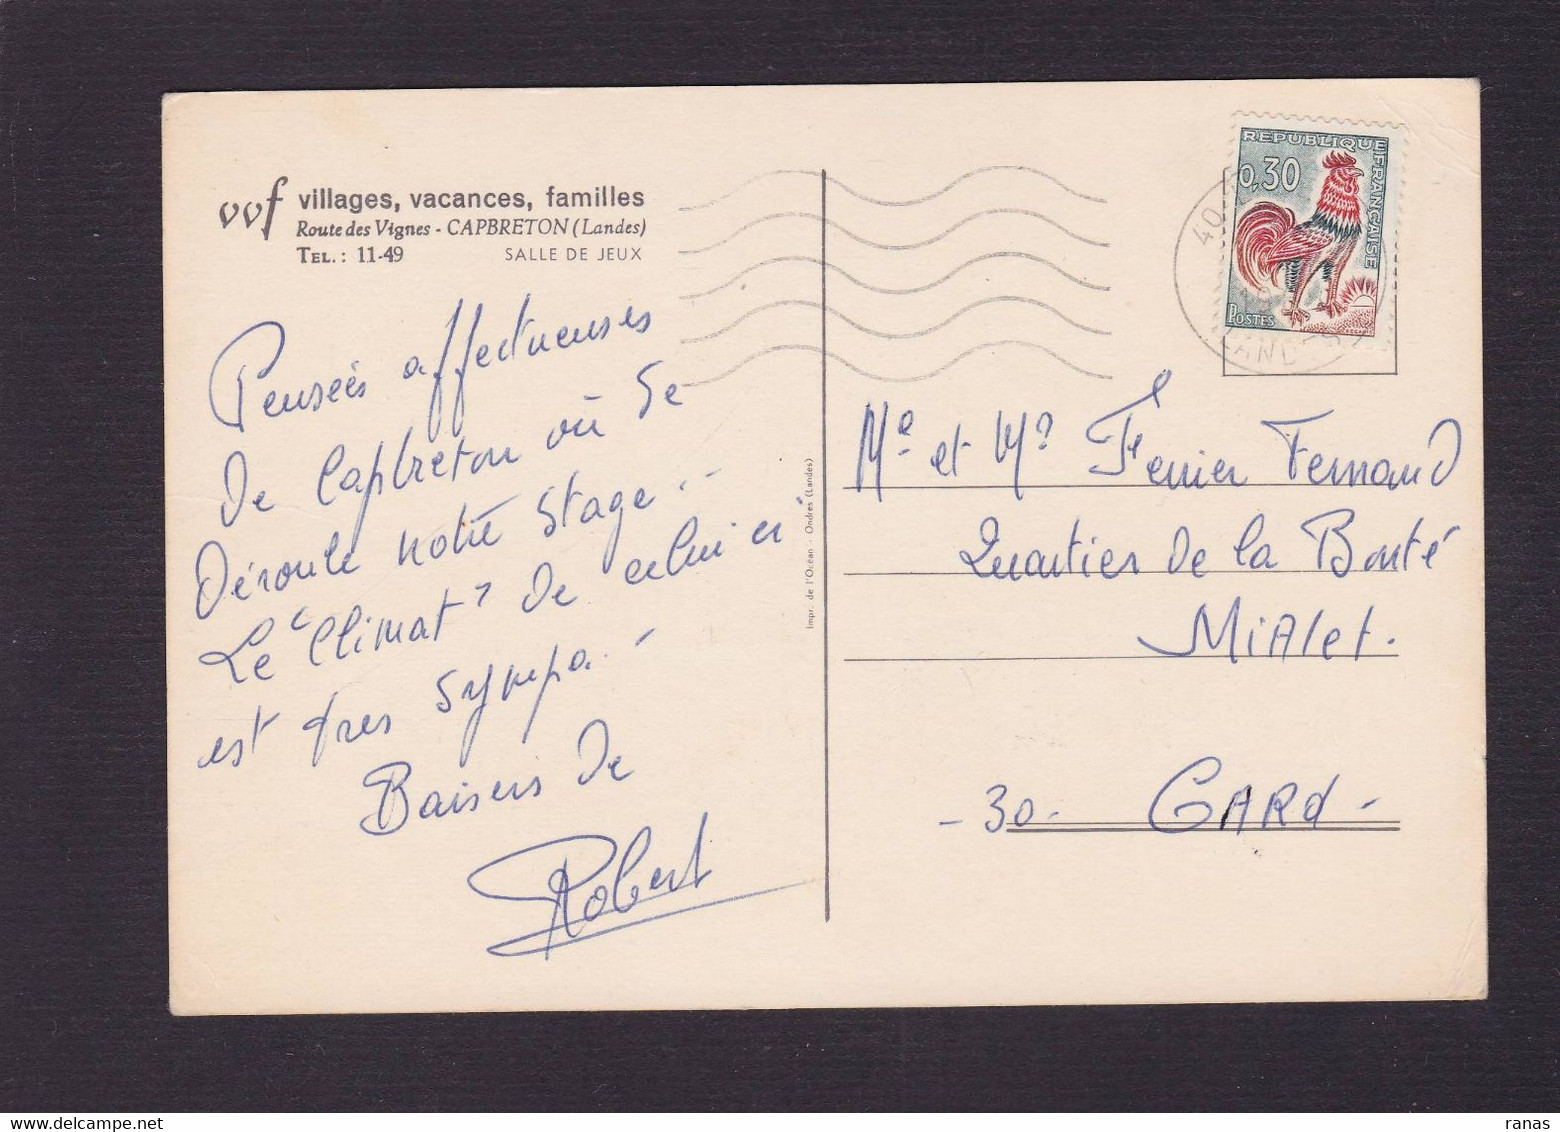 vvf villages, vacances, familles
Route des Vignes - CAPBRETON (Landes)
TEL. : 11-49 SALLE DE JEUX
Pensées affectueuses
De Capbreton où Se
Déroule notre Stage.-
Le "Climat" De celui ci
est très sympa.-
Baisers De
Robert
Impr. de l'Océan - Ondres (Landes)
REPUBLIQUE FRANÇAISE
0,30
POSTES
40
LANDES
Me et Mr Ferrier Fernand
Quartier De la Bonté
MiAlet.
- 30 - GARd -
ranas